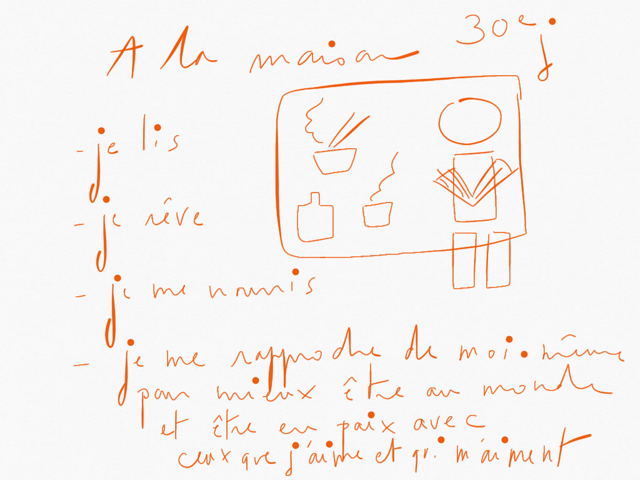 A la maison 30e j
- je lis
- je rêve
- je me nourris
- je me rapproche de moi-même
pour mieux être au monde
et être en paix avec
ceux que j'aime et qui m'aiment